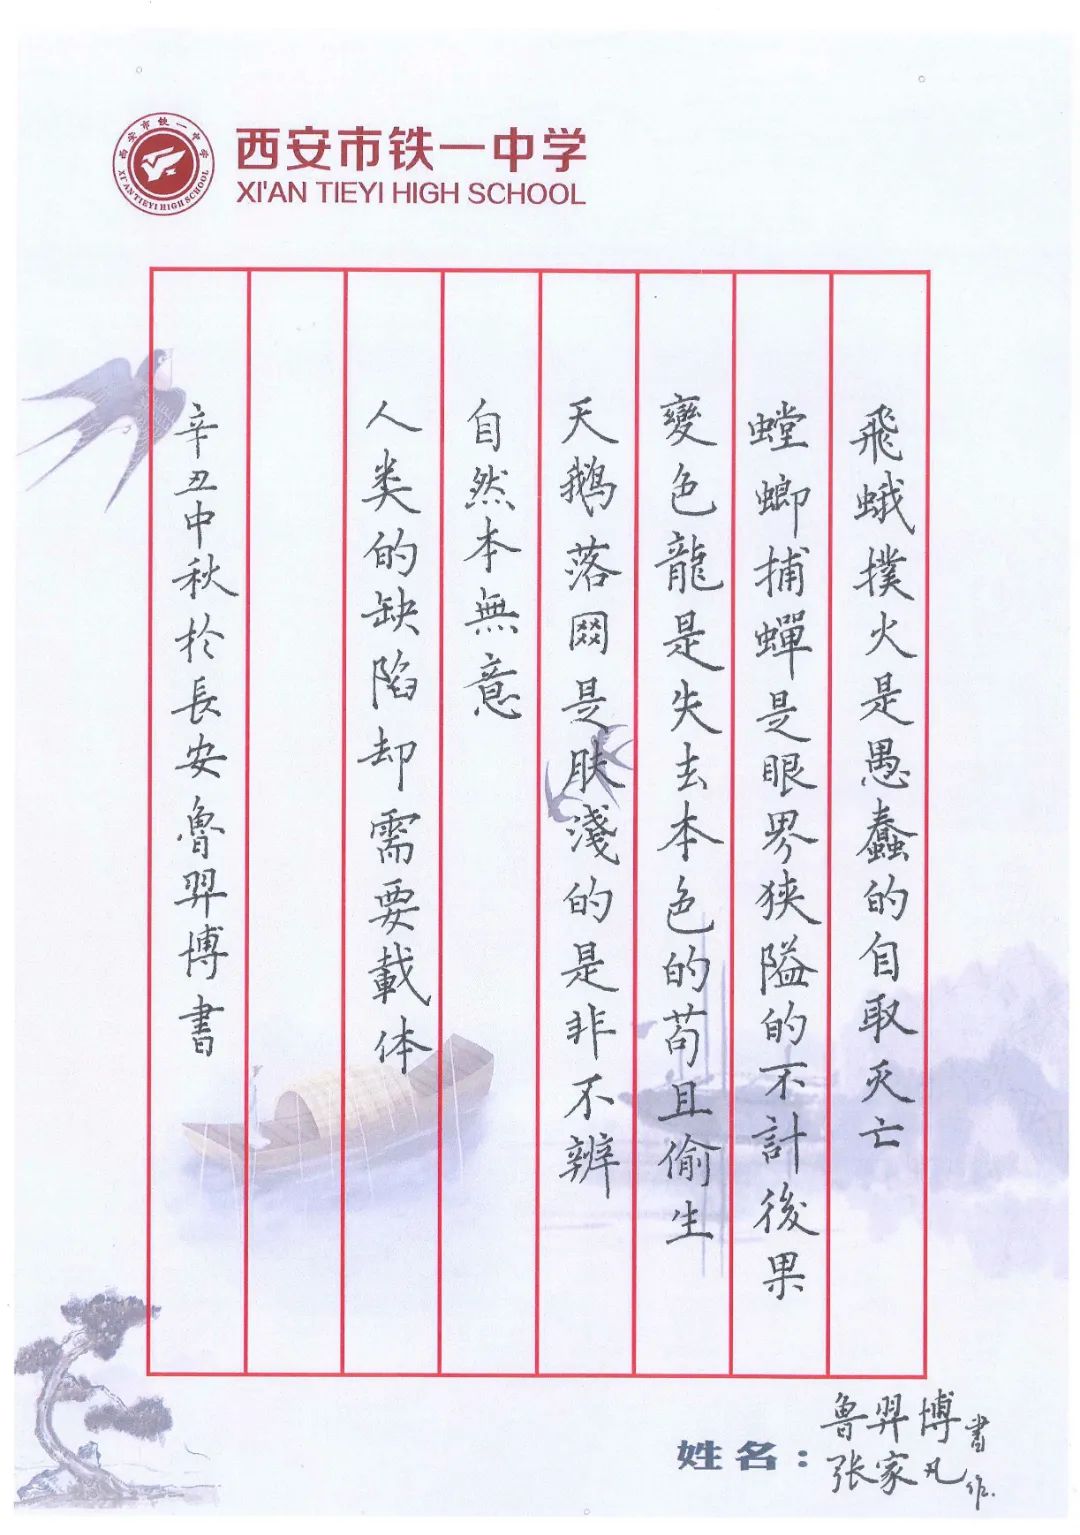 西安市铁一中学
XI'AN TIEYI HIGH SCHOOL
西安市铁一中学
XI'AN TIEYI HIGH SCHOOL
飛蛾撲火是愚蠢的自取灭亡
螳螂捕蟬是眼界狭隘的不計後果
變色龍是失去本色的苟且偷生
天鵝落網是肤淺的是非不辨
自然本無意
人类的缺陷却需要載体
辛丑中秋於長安魯羿博書
姓名：
魯羿博書
张家凡作.